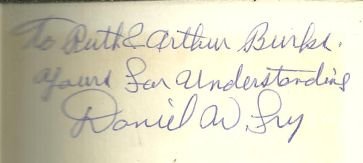 To Ruth & Arthur Burks.
Yours for Understanding
Daniel W. Fry